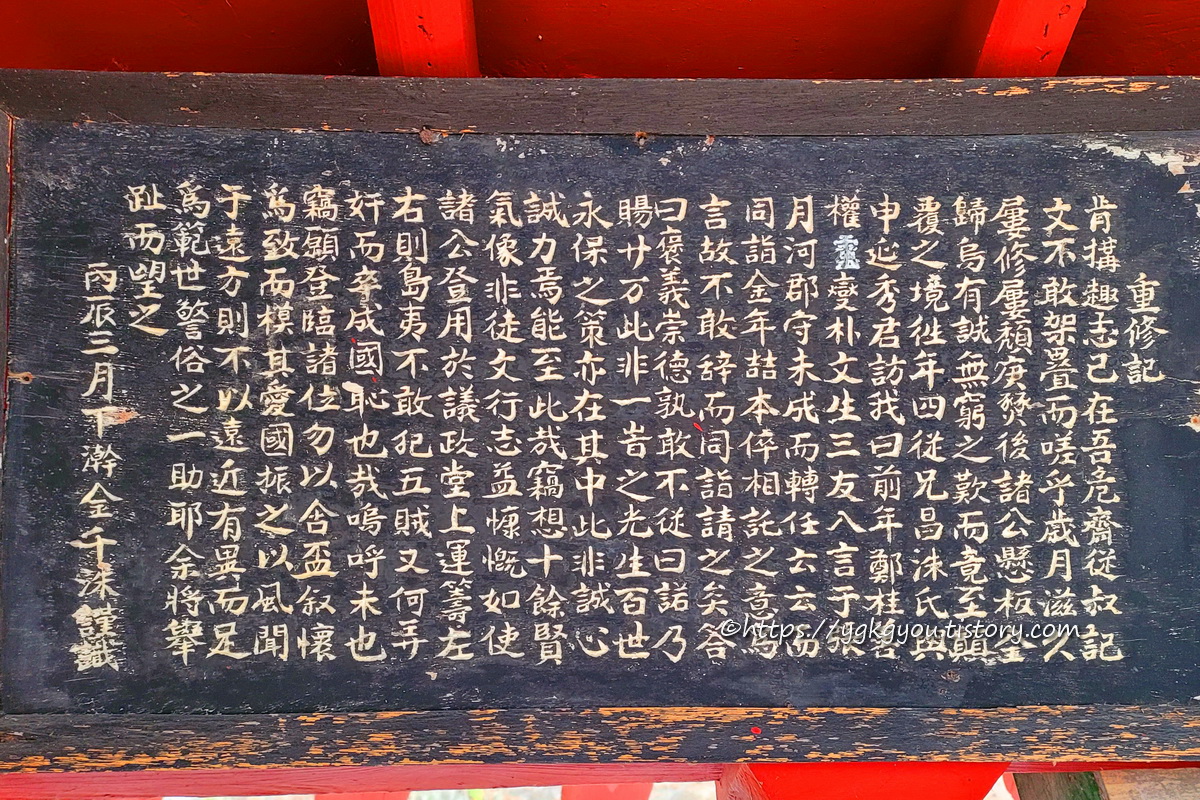 重修記
肯搆趣志已在吾危齋從叔記
文不敢架疊而嗟乎歲月滋久
屢修屢頹庚發後諸公懸板全
歸烏有誠無窮之歎而竟至顚
覆之境徃年四從兄昌洙氏與
申延秀君訪我曰前年鄭桂善
權 燮朴文生三友八言于張
月河郡守未成而轉任云云而
同詣金年喆本倅相託之意爲
言故不敢辞而同詣請之矣答
曰褒義崇德孰敢不從曰諾乃
賜廿万此非一岩之光生百世
永保之策亦在其中此非誠心
誠力焉能至此哉竊想十餘賢
氣像非徒文行志益慷慨如使
諸公登用於議政堂上運籌左
右則島夷不敢犯五賊又何弄
奸而卒成國恥也哉嗚呼未也
竊願登臨諸位勿以含盃叙懷
爲致而模其愛國振之以風聞
于遠方則不以遠近有異而足
爲範世警俗之一助耶余將擧
趾而望之
丙辰三月下澣金千洙謹識
©https://ygkgyou.tistory.com